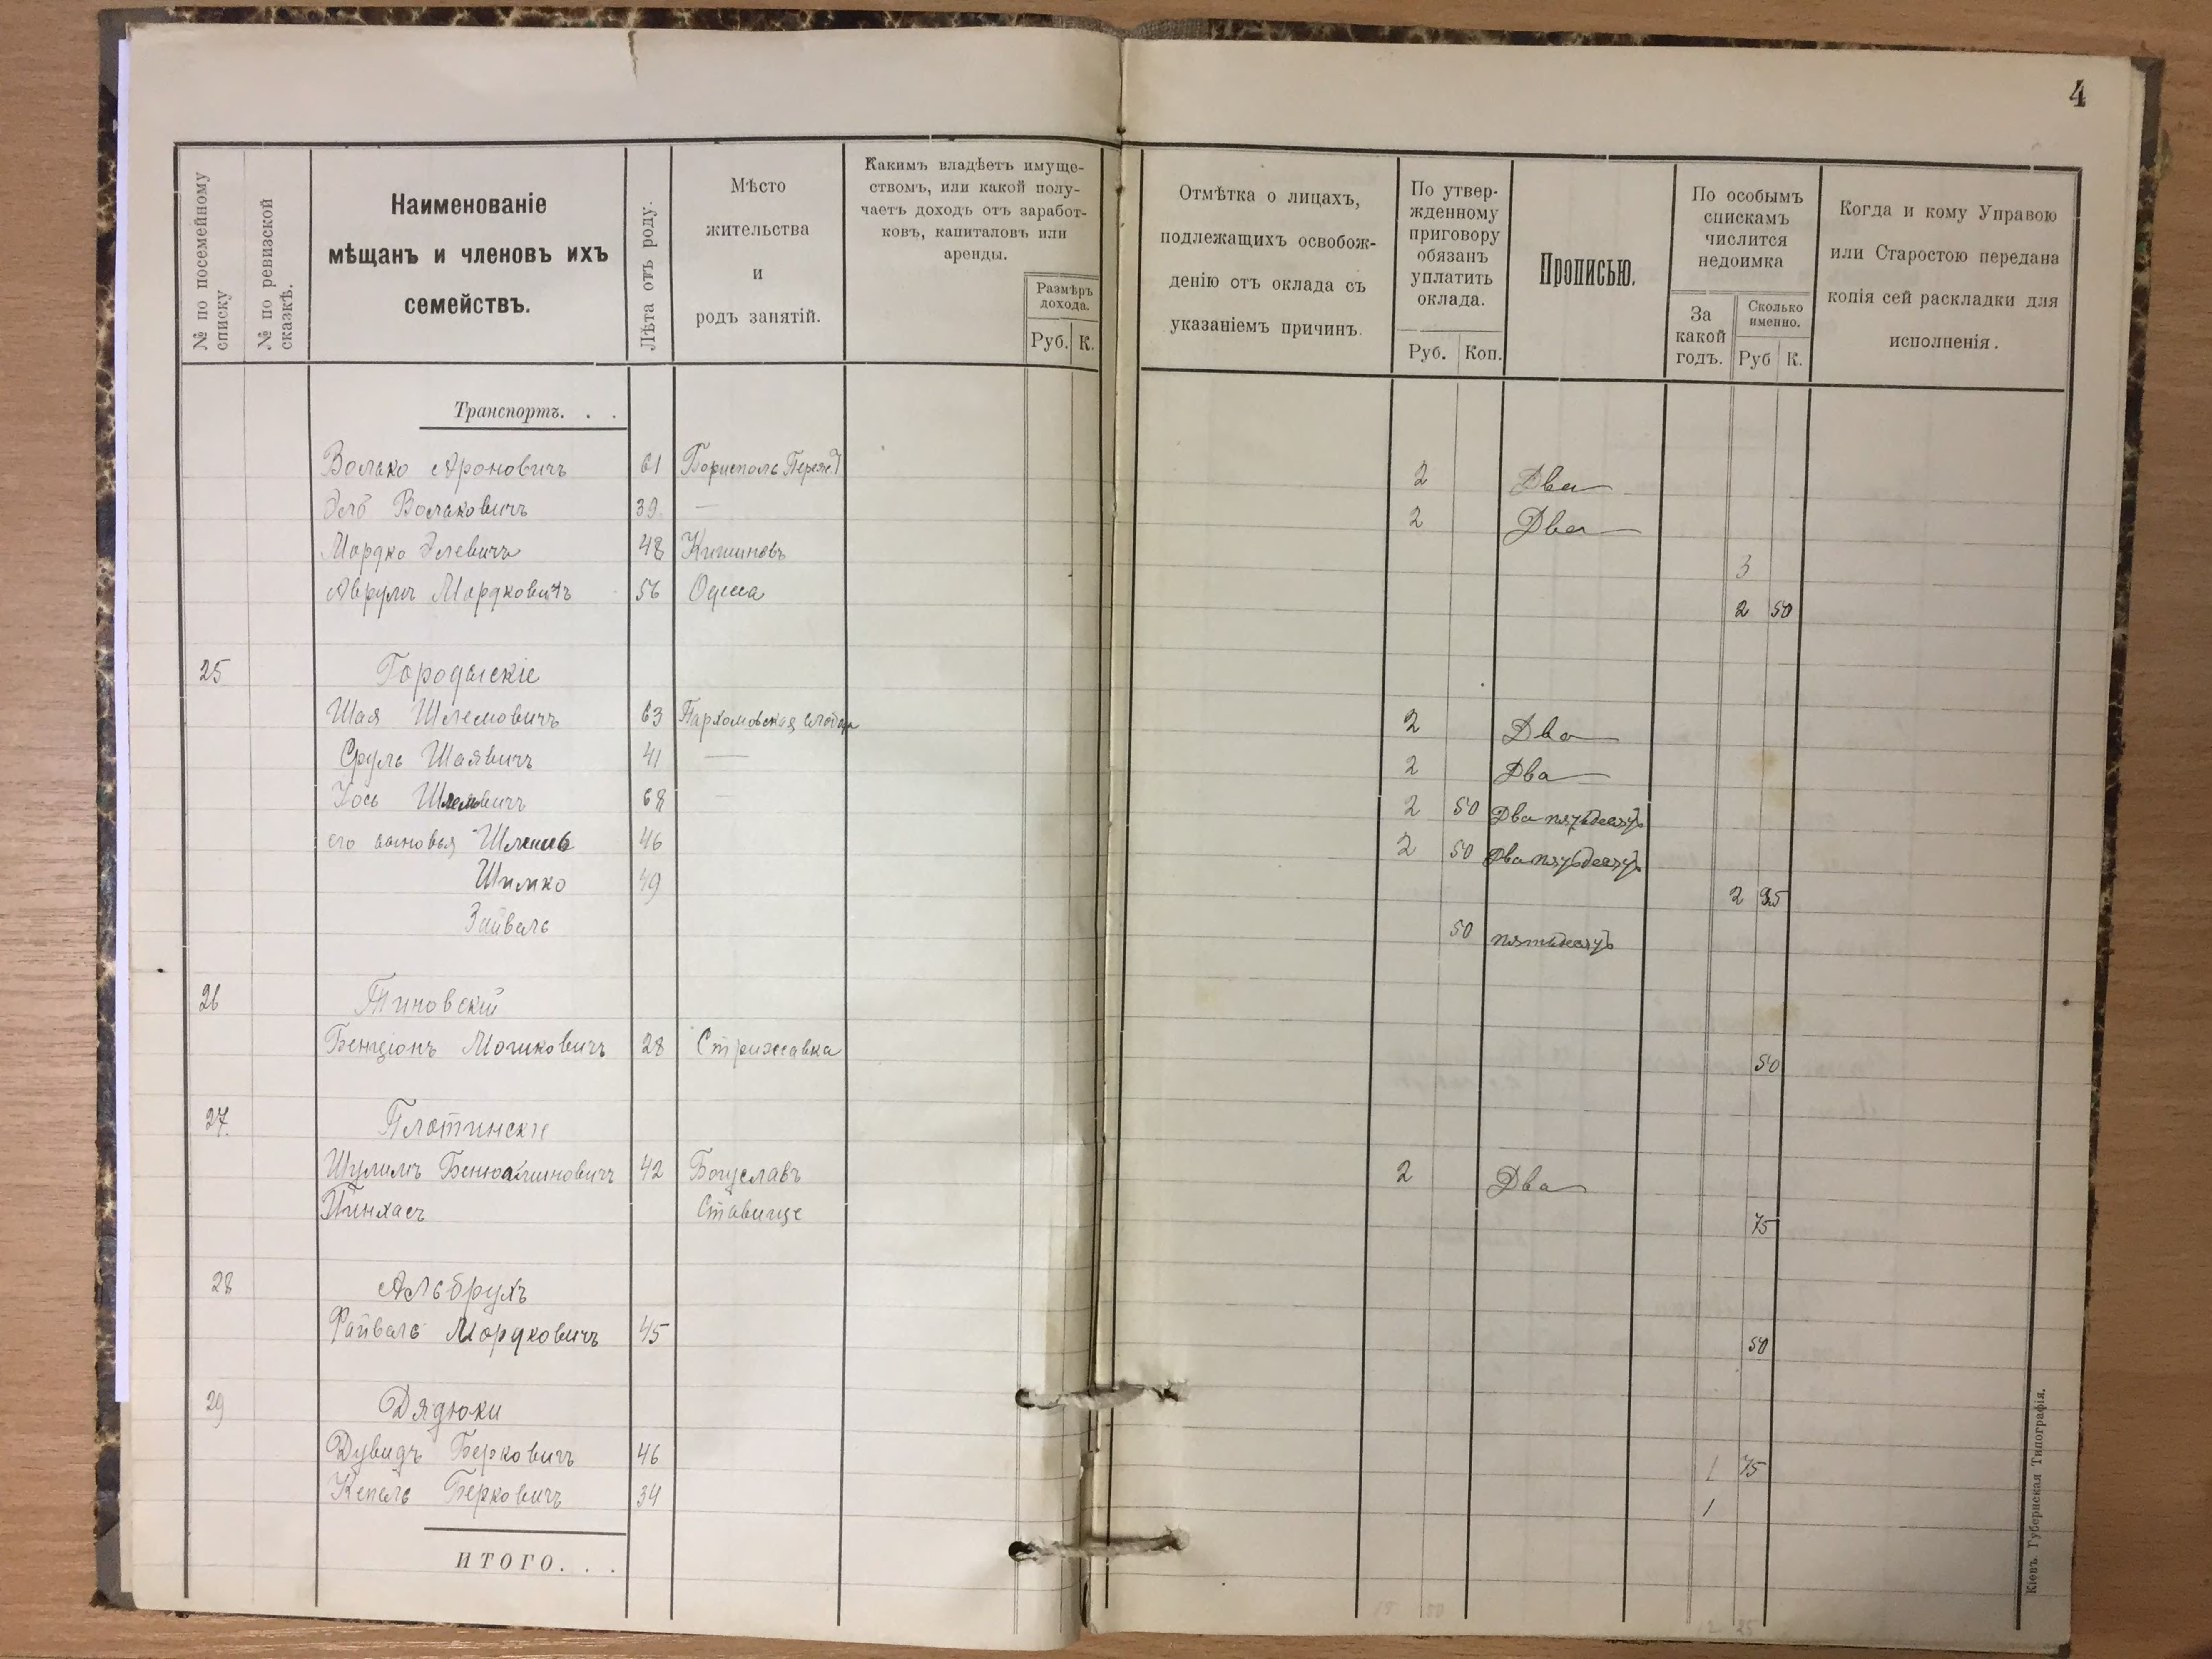 4
№ по посемейному списку
№ по ревизской сказкѣ.
Наименованіе
мѣщанъ и членовъ ихъ
семействъ.
Лѣта отъ роду.
Мѣсто
жительства
и
родъ занятій.
Какимъ владѣетъ имуще-
ствомъ, или какой полу-
чаетъ доходъ отъ заработ-
ковъ, капиталовъ или
аренды.
Размѣръ
дохода.
Руб. К.
Отмѣтка о лицахъ,
подлежащихъ освобож-
денію отъ оклада съ
указаніемъ причинъ.
По утвер-
жденному
приговору
обязанъ
уплатить
оклада.
Руб. Коп.
Прописью.
По особымъ
спискамъ
числится
недоимка
За
какой
годъ.
Сколько
именно.
Руб К.
Когда и кому Управою
или Старостою передана
копія сей раскладки для
исполненія.
Транспортъ. . .
Волько Ароновичъ 61 Борисполь 2 Два
Волькович 39 — 2 Два
Мордко Элевичъ 48 Кишиновъ 3
Аврумъ Мордковичъ 56 Одесса 2 50
25 Городыскіе
Шая Шлемовичъ 63 Пархомовская слобода 2 Два
Сруль Шаявичъ 41 — 2 Два
Іось Шлемовичъ 68 — 2 50 Два пятьдесятъ
его сыновья Шлема 46 2 50 Два пятьдесятъ
Шимко 49 2 95
Зайвель 50 пятьдесятъ
26 Тиновскій
Бенціонъ Мошковичъ 28 Стрижавка 50
27. Плотинскіе
Шулимъ Бенюаминовичъ 42 Богуславъ 2 Два
Пинхасъ Ставище 75
28 Альбрухъ
Файвель Мордковичъ 45 50
29 Дядюки
Дувидъ Берковичъ 46 1 75
Кепель Берковичъ 34 1
ИТОГО. . .
18 50 12 25
Кіевъ. Губернская Типографія.